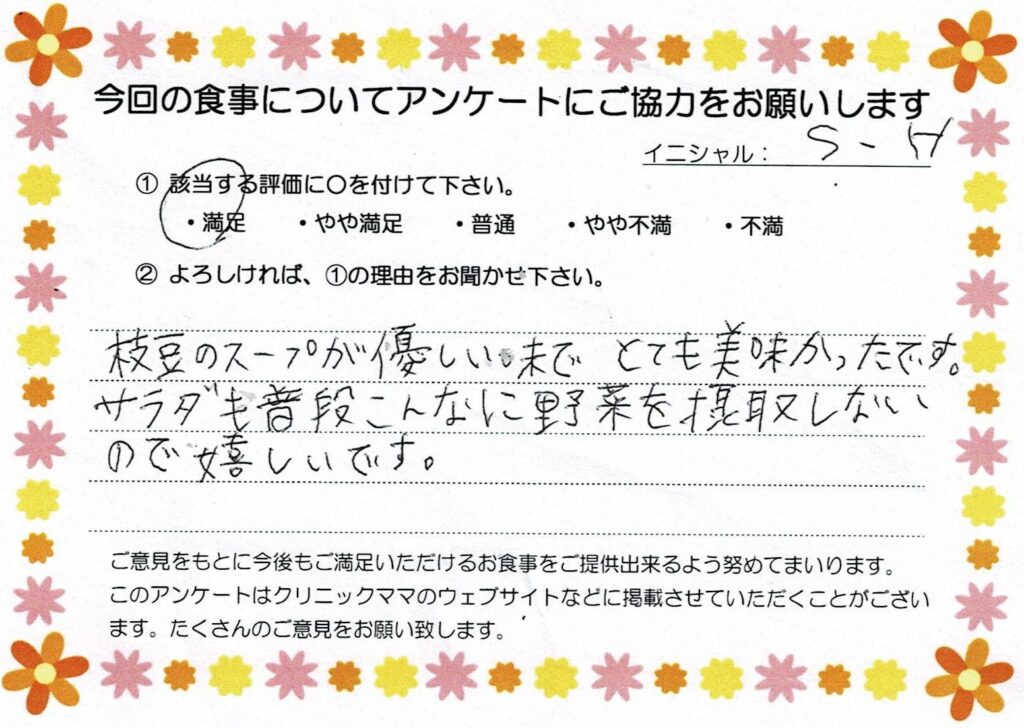 今回の食事についてアンケートにご協力をお願いします
イニシャル： S - H
① 該当する評価に○を付けて下さい。
・満足 ・やや満足 ・普通 ・やや不満 ・不満
② よろしければ、①の理由をお聞かせ下さい。
枝豆のスープが優しい味で とても美味かったです。
サラダも普段こんなに野菜を摂取しない
ので嬉しいです。
ご意見をもとに今後もご満足いただけるお食事をご提供出来るよう努めてまいります。
このアンケートはクリニックママのウェブサイトなどに掲載させていただくことがござい
ます。たくさんのご意見をお願い致します。